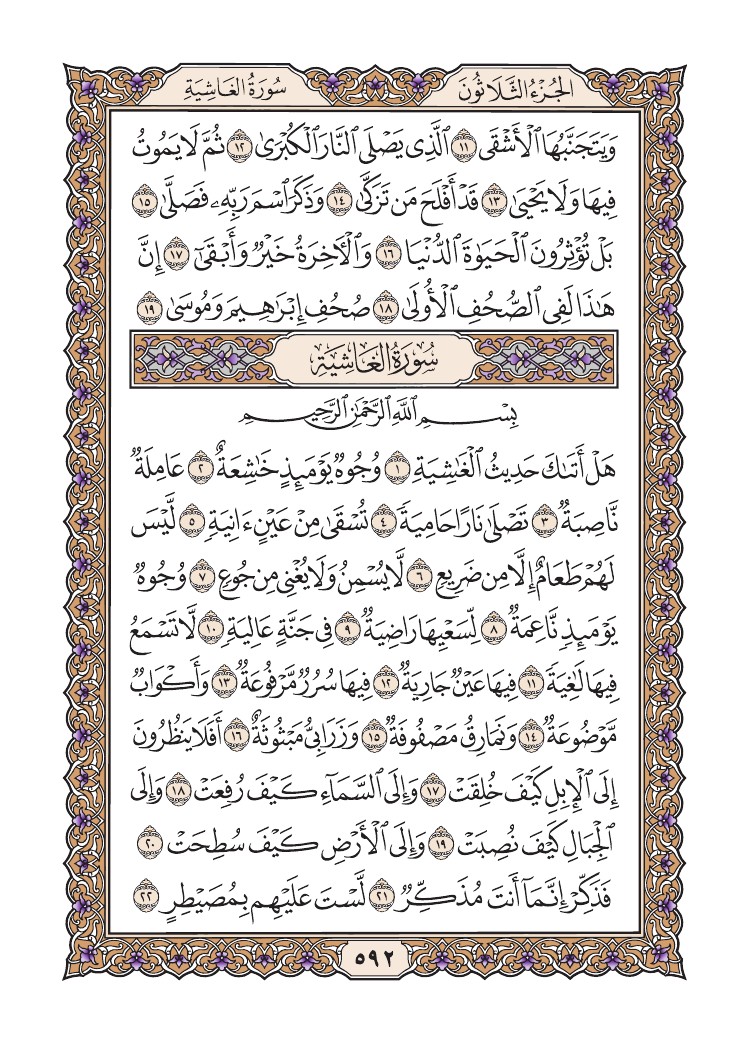 الجُزْءُ الثَّلَاثُونَ
سُورَةُ الغَاشِيَةِ
وَيَتَجَنَّبُهَا ٱلۡأَشۡقَى ١١ ٱلَّذِي يَصۡلَى ٱلنَّارَ ٱلۡكُبۡرَىٰ ١٢ ثُمَّ لَا يَمُوتُ
فِيهَا وَلَا يَحۡيَىٰ ١٣ قَدۡ أَفۡلَحَ مَن تَزَكَّىٰ ١٤ وَذَكَرَ ٱسۡمَ رَبِّهِۦ فَصَلَّىٰ ١٥
بَلۡ تُؤۡثِرُونَ ٱلۡحَيَوٰةَ ٱلدُّنۡيَا ١٦ وَٱلۡأٓخِرَةُ خَيۡرٞ وَأَبۡقَىٰٓ ١٧ إِنَّ
هَٰذَا لَفِي ٱلصُّحُفِ ٱلۡأُولَىٰ ١٨ صُحُفِ إِبۡرَٰهِيمَ وَمُوسَىٰ ١٩
سُورَةُ الغَاشِيَةِ
بِسۡمِ ٱللَّهِ ٱلرَّحۡمَٰنِ ٱلرَّحِيمِ
هَلۡ أَتَىٰكَ حَدِيثُ ٱلۡغَٰشِيَةِ ١ وُجُوهٞ يَوۡمَئِذٍ خَٰشِعَةٌ ٢ عَامِلَةٞ
نَّاصِبَةٞ ٣ تَصۡلَىٰ نَارًا حَامِيَةٗ ٤ تُسۡقَىٰ مِنۡ عَيۡنٍ ءَانِيَةٖ ٥ لَّيۡسَ
لَهُمۡ طَعَامٌ إِلَّا مِن ضَرِيعٖ ٦ لَّا يُسۡمِنُ وَلَا يُغۡنِي مِن جُوعٖ ٧ وُجُوهٞ
يَوۡمَئِذٖ نَّاعِمَةٞ ٨ لِّسَعۡيِهَا رَاضِيَةٞ ٩ فِي جَنَّةٍ عَالِيَةٖ ١٠ لَّا تَسۡمَعُ
فِيهَا لَٰغِيَةٗ ١١ فِيهَا عَيۡنٞ جَارِيَةٞ ١٢ فِيهَا سُرُرٞ مَّرۡفُوعَةٞ ١٣ وَأَكۡوَابٞ
مَّوۡضُوعَةٞ ١٤ وَنَمَارِقُ مَصۡفُوفَةٞ ١٥ وَزَرَابِيُّ مَبۡثُوثَةٌ ١٦ أَفَلَا يَنظُرُونَ
إِلَى ٱلۡإِبِلِ كَيۡفَ خُلِقَتۡ ١٧ وَإِلَى ٱلسَّمَآءِ كَيۡفَ رُفِعَتۡ ١٨ وَإِلَى
ٱلۡجِبَالِ كَيۡفَ نُصِبَتۡ ١٩ وَإِلَى ٱلۡأَرۡضِ كَيۡفَ سُطِحَتۡ ٢٠
فَذَكِّرۡ إِنَّمَآ أَنتَ مُذَكِّرٞ ٢١ لَّسۡتَ عَلَيۡهِم بِمُصَيۡطِرٍ ٢٢
٥٩٢